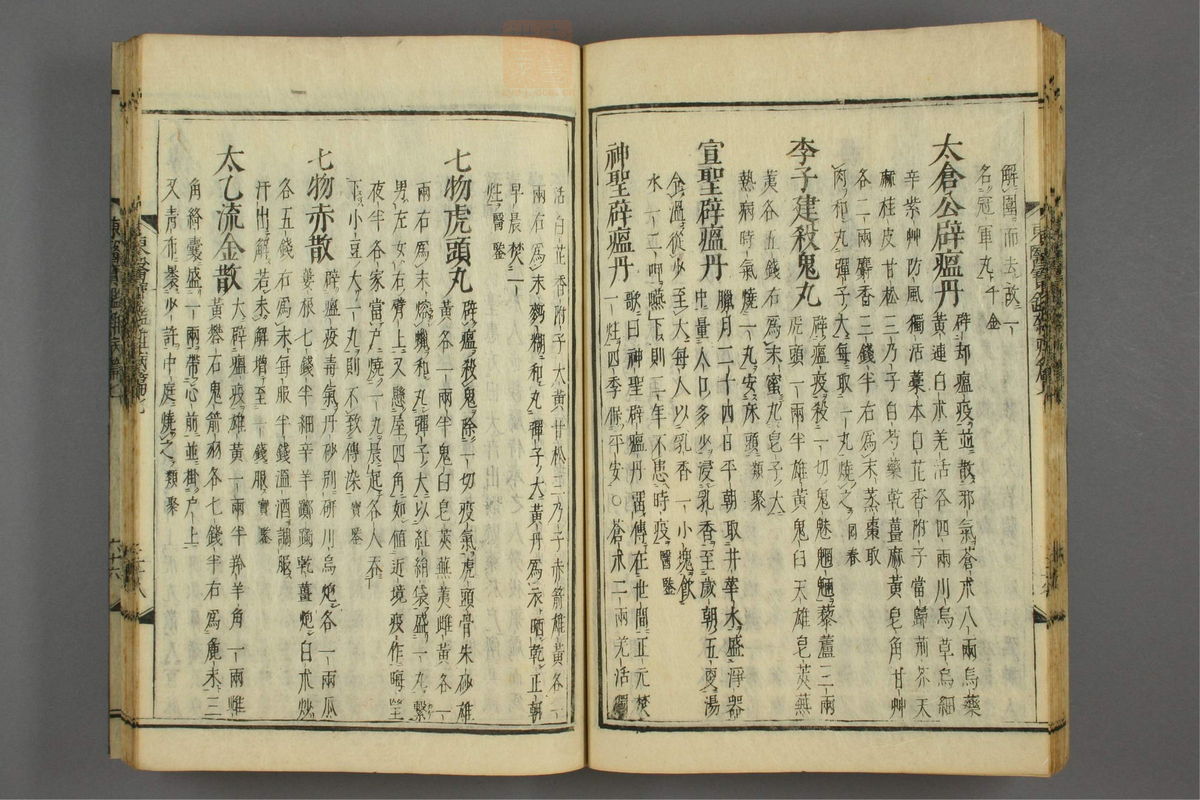 解圍而去故一
名冠軍丸千金
太倉公辟瘟丹
辟却瘟疫並散邪氣蒼朮八兩烏藥
黃連白朮羌活各四兩川烏草烏細
辛紫艸防風獨活藁本白芷香附子當歸荊芥天
麻桂皮甘松三乃子白芍藥乾薑麻黃皂角甘艸
各二兩麝香三錢半右爲末蒸棗取
肉和丸彈子大每取一丸燒之 回春
李子建殺鬼丸
辟瘟疫殺一切鬼魅魍魎藜蘆三兩
虎頭一兩半雄黃鬼臼天雄皂莢蕪
荑各五錢右爲末蜜丸皂子大
熱病時氣燒一丸安床頭 類聚
宣聖辟瘟丹
臘月二十四日平朝取井華水盛淨器
中量人口多少浸乳香至歲朝五更湯
令溫從少至大每人以乳香一小塊飮
水一二呷嚥下則一年不患時疫 醫鑒
神聖辟瘟丹
歌曰神聖辟瘟丹謂傳在世間正元焚
一炷四季保平安○蒼朮二兩羌活獨
活白芷香附子大黃甘松三乃子赤箭雄黃各一
兩右爲末麪糊和丸彈子大黃丹爲衣晒乾正朝
早晨焚一
炷 醫鑒
七物虎頭丸
辟瘟殺鬼除一切疫氣虎頭骨朱砂雄
黃各一兩半鬼臼皂莢蕪荑雌黃各一
兩右爲末熔蠟和丸彈子大以紅絹袋盛一丸繫
男左女右臂上又懸屋四角如値近境疫作晦望
夜半各家當戶燒一丸晨起各人呑
下小豆大一丸則不致傳染 寶鑑
七物赤散
辟瘟疫毒氣丹砂別研川烏炮各一兩瓜
蔞根七錢半細辛羊躑躅乾薑炮白朮炒
各五錢右爲末每服半錢溫酒調服
汗出解若未解增至一錢服 寶鑑
太乙流金散
大辟瘟疫雄黃一兩半羚羊角一兩雌
黃礬石鬼箭羽各七錢半右爲麁末三
角絳囊盛一兩帶心前並掛戶上
又靑布裹少許中庭燒之 類聚